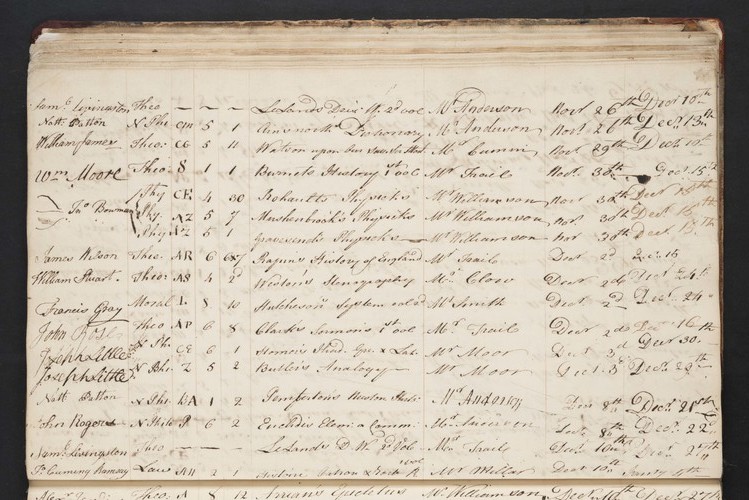 Saml. Livingston Theo — — — Lelands Deis 2d vol Mr. Anderson Novr 26th Decr 10th
Natl: Patton N Phi CM 5 1 Ainsworth Dictionary Mr. Anderson Novr 26th Decr 13th
William James Theo: CG 5 11 Watson upon our Mr. Cumin Novr 29th Decr 10th
Wm. Moore Theo: S 1 1 Burnets History 1st vol Mr Trail Novr 30th Decr 15th
Jno Bowman Phy CE 4 30 Rohaults Physicks Mr Williamson Novr 30th Decr 15th
Phy. AZ 5 7 Mushenbrook's Physicks Mr Williamson Novr 30th Decr 15th
Phy AZ 5 1 Gravesends Physicks Mr Williamson Novr 30th Decr 15th
James Wilson Theo: AR 6 6x7 Rapin's History of England Mr Trail Decr 2d Decr 16
William Stuart Theo: AS 4 2d Weston's Stenography Mr. Clow Decr 2d Decr 24th
Francis Gray Moral L 8 10 Hutcheson's System vol 2d Mr Smith Decr 2d Decr 24
John Rose Theo AP 6 8 Clark's Sermons 1st vol Mr. Trail Decr 2d Decr 16th
Joseph Little N Ph. CE 6 1 Homer's Iliad. Gr. & Lat. Mr Moor Decr 3d Decr 30
Joseph Little N Phi. Z 5 2 Butler's Analogy Mr Moor Decr 3d Decr 22th
Natl: Patton N Phi: BA 1 2 Pemberton's Newton Mr. Anderson Decr 8th Decr 21st
John Rogers N Philo P 6 2 Euclidis Elem: a Comm: Mr. Anderson Decr 8th Decr 22d
Saml. Livingston Theo — Lelands D. W. 2d Vol: Mr. Trail Decr 10th Decr 21
Cuming Ramsay Law AH 2 1 Mr Millar Decr 10th Jany 4th
Theo. A 8 12 Arrian's Epictetus Mr. Williamson